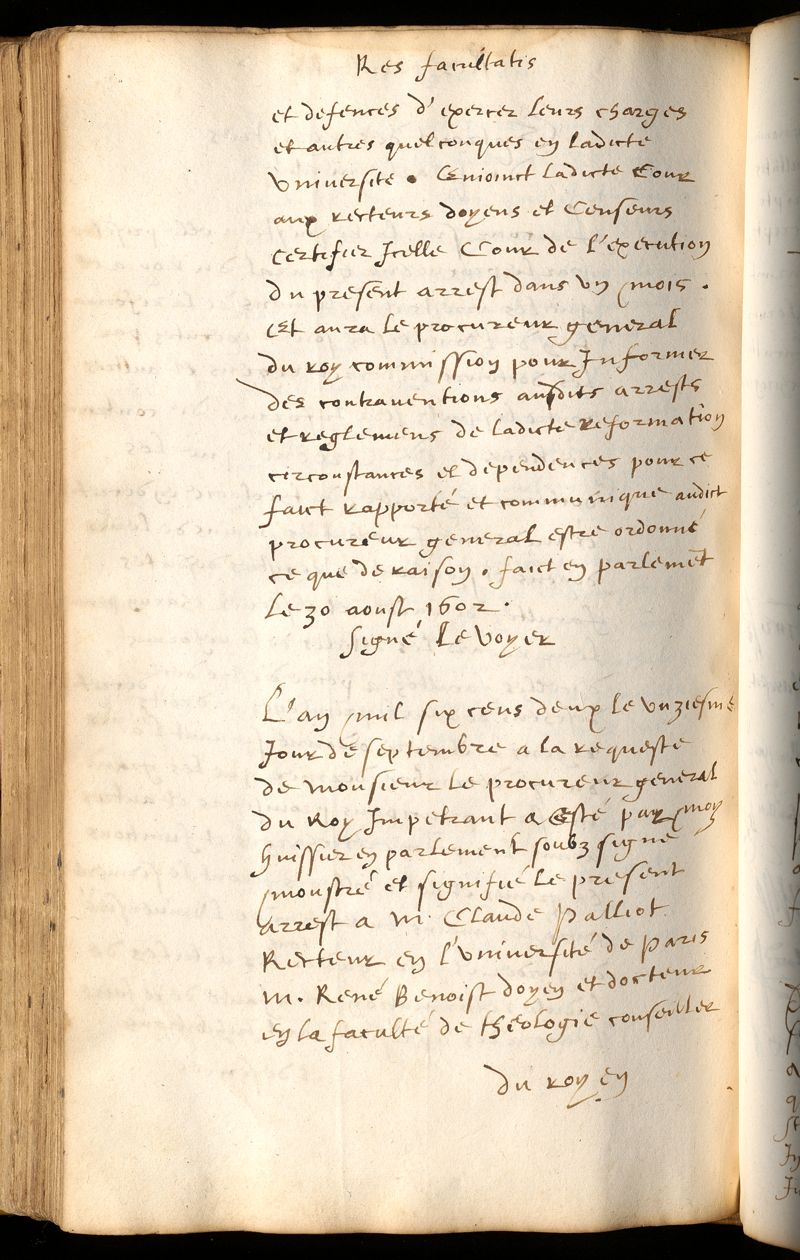 Res facultatis
et defences d'exercer leurs charges
et autres quelconques en ladicte
Université. Enioinct ladicte Cour
aux recteurs doyens et Censeurs
certifier Icelle Cour de l'execution
du present arrest dans un mois.
Et aura le procureur general
du roy commission pour Informer
des contraventions ausdits arrests
et reglemens de ladicte reformation
circonstances et dependences pour ce
faict rapporté et communiqué audict
procureur general estre ordonné
ce que de raison. faict en parlemēt
le 30 aoust 1602.
signé Levoyer
L'an mil six cens deux le unziesme
Jour de septembre a la requeste
de monsieur le procureur general
du Roy Impetrant a esté par moy
huissier en parlement soubz signé
monstré et signifié le present
arrest a M. Claude Palliot
Recteur en l'Université de Paris
M. René Benoist doyen et docteur
en la faculté de theologie conseiller
du roy en